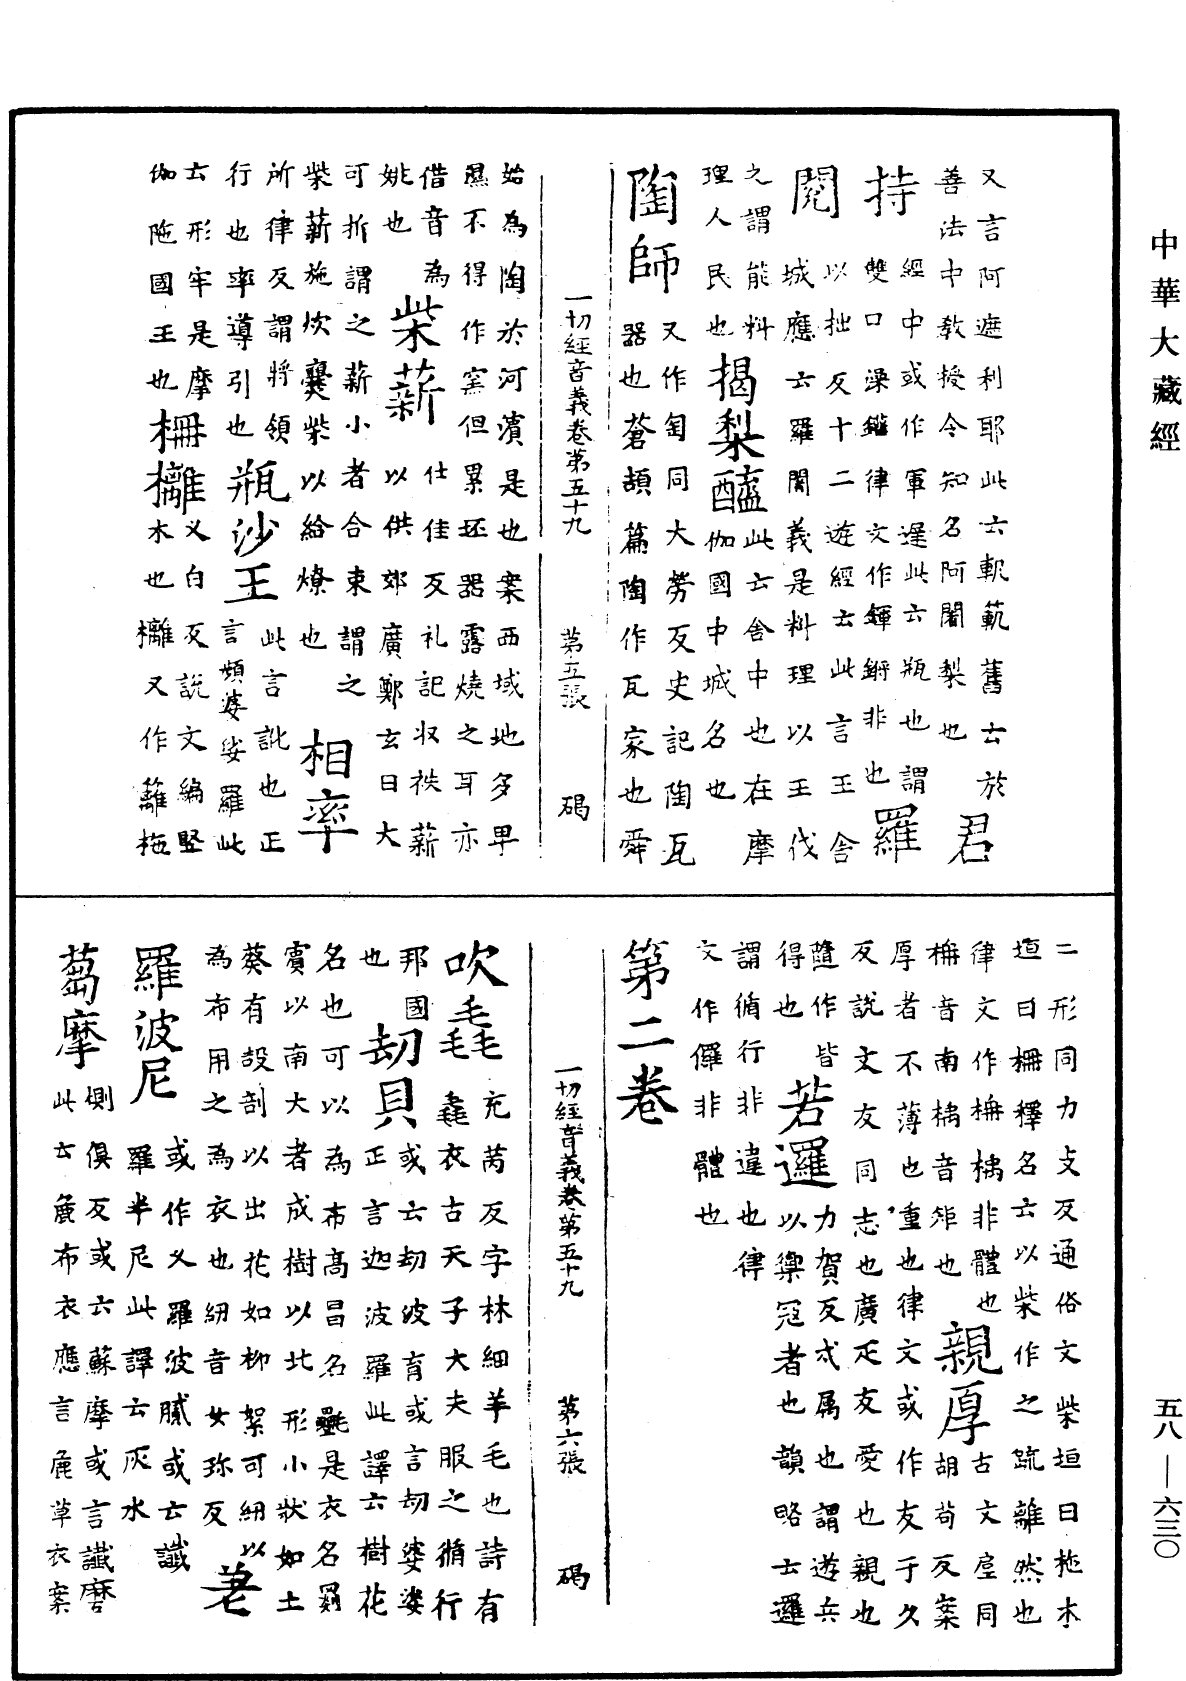 中華大藏經
又言阿遮利耶此云軌範舊云於
善法中教授令知名阿闍梨也 君
持 經中或作軍遲此云瓶也謂
雙口澡鑵律文作鍕鍸非也 羅
閱 以拙反十二遊經云此言王舍
城應云羅閱義是料理以王代
之謂能料
理人民也 揭梨醯 此云舍中也在摩
伽國中城名也
陶師 又作匋同大勞反史記陶瓦
器也蒼頡篇陶作瓦家也舜
一切經音義卷第五十九 第五張 碣
始為陶於河濱是也案西域地多卑
濕不得作窯但累坯器露燒之耳亦
借音為
姚也 柴薪 仕佳反礼記收秩薪
以供郊廣鄭玄曰大
可折謂之薪小者合束謂之
柴薪施炊爨柴以給燎也 相率
所律反謂將領
行也率導引也 瓶沙王 此言訛也正
言頻婆娑羅此
云形牢是摩
伽陁國王也 柵欏 义白反說文編竪
木也欏又作籬柂
二形同力支反通俗文柴垣曰柂木
垣曰柵釋名云以柴作之疏離然也
律文作柟構非體也
柟音南構音矩也 親厚 古文垕同
胡苟反案
厚者不薄也重也律文或作友于久
反說文友同志也廣疋友愛也親也
隨作皆
得也 若邏 力賀反弌属也謂遊兵
以禦寇者也韻略云邏
謂循行非違也律
文作儸非體也
第二卷
一切經音義卷第五十九 第六張 碣
吹毳 充芮反字林細羊毛也詩有
毳衣古天子大夫服之循行
邦國
也 劫貝 或云劫波育或言劫婆婆
正言迦波羅此譯云樹花
名也可以為布高昌名㲲是衣名罽
賓以南大者成樹以北形小狀如土
葵有𣪊剖以出花如柳絮可紉以
為布用之為衣也紉音女珍反 㲉
羅波尼 或作义羅波膩或云讖
羅半尼此譯云灰水
蒭摩 側俱反或云蘇摩或言讖磨
此云麁布衣應言麁草衣案
五八—六三〇